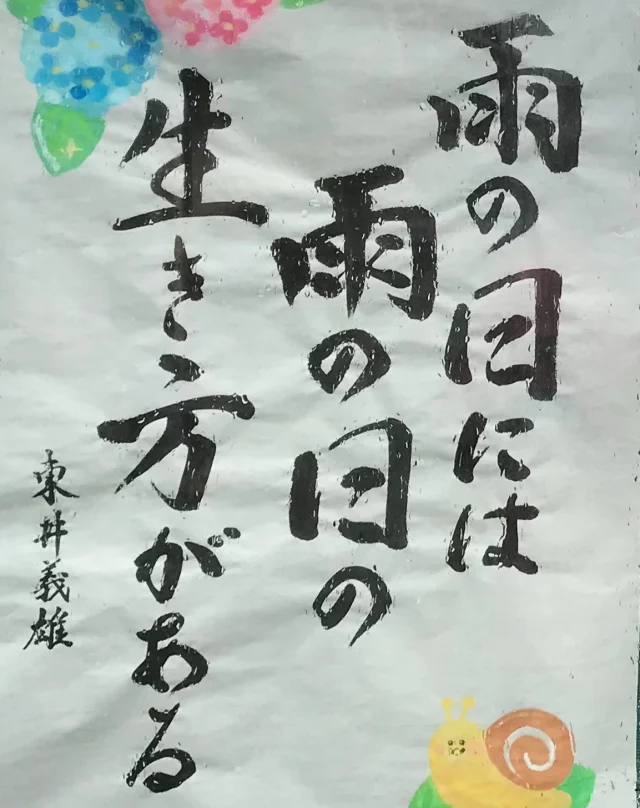 雨の日には
雨の日の
生き方がある
東井義雄